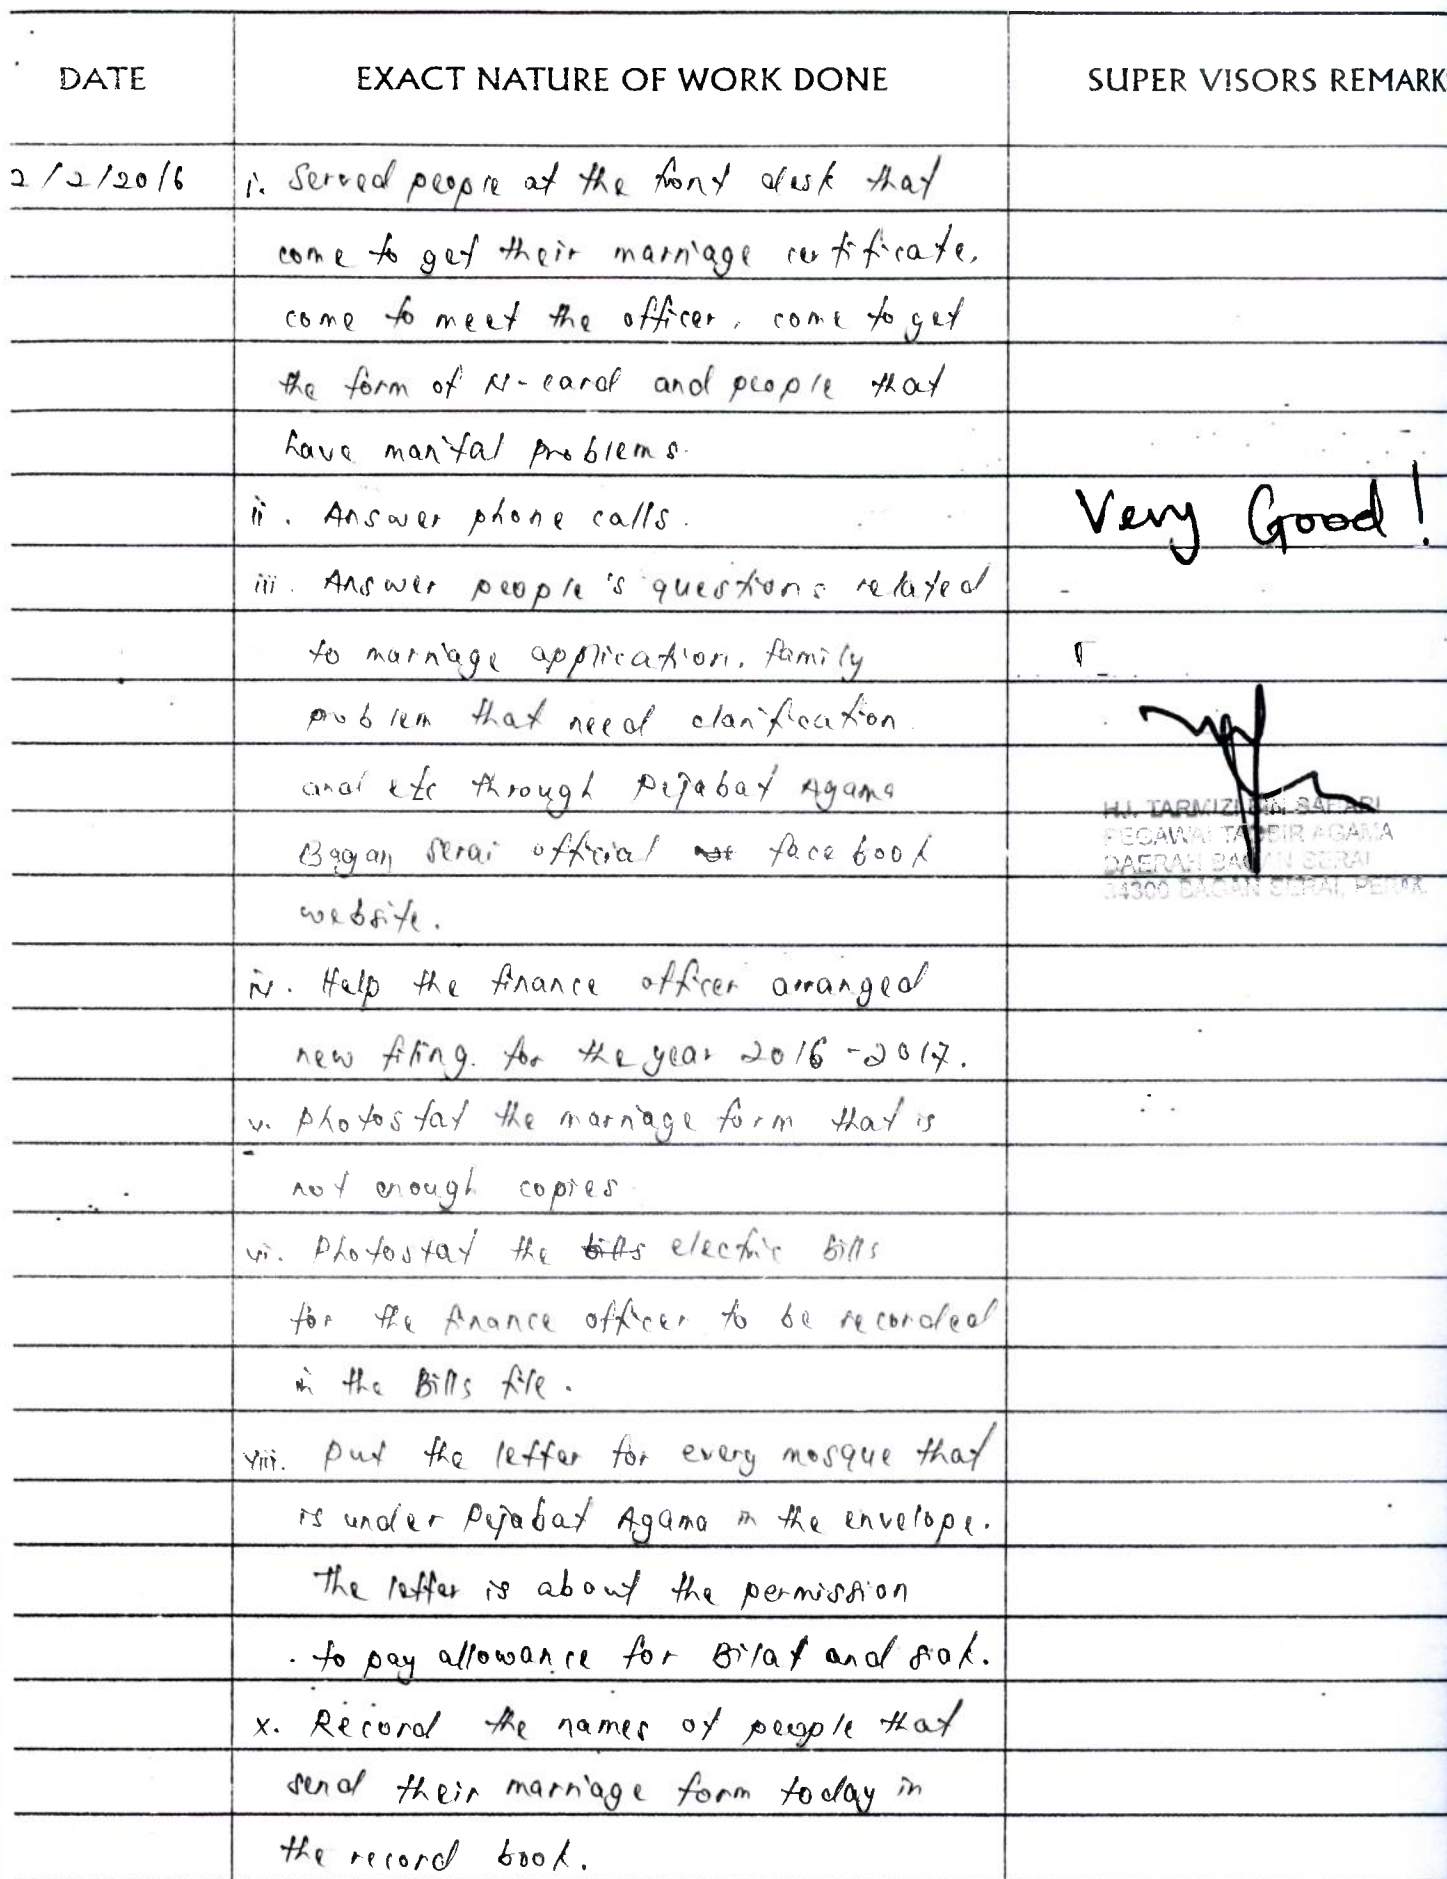 DATE EXACT NATURE OF WORK DONE SUPER VISORS REMARK
2/2/2016 i. Served people at the front desk that
come to get their marriage certificate,
come to meet the officer, come to get
the form of N-card and people that
have marital problems.
ii. Answer phone calls.
Very Good!
iii. Answer people's questions related
to marriage application, family
problem that need clarification
and etc through Pejabat Agama
HJ. TARMIZI BIN SAFARI
PEGAWAI TADBIR AGAMA
Bagan Serai official facebook
DAERAH BAGAN SERAI
34300 BAGAN SERAI, PERAK
website.
iv. Help the finance officer arranged
new filing. for the year 2016-2017.
v. Photostat the marriage form that is
not enough copies
vi. Photostat the bills electric bills
for the finance officer to be recorded
in the Bills file.
viii. Put the letter for every mosque that
is under Pejabat Agama in the envelope.
The letter is about the permission
to pay allowance for Bilal and siak.
x. Record the names of people that
send their marriage form today in
the record book.